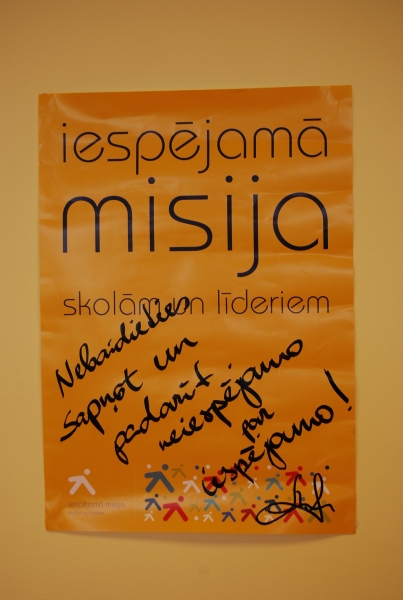 iespējamā
misija
skolām un līderiem
Nebaidieties
sapņot un
padarīt
neiespējamo
par
iespējamo!
iespējamā misija